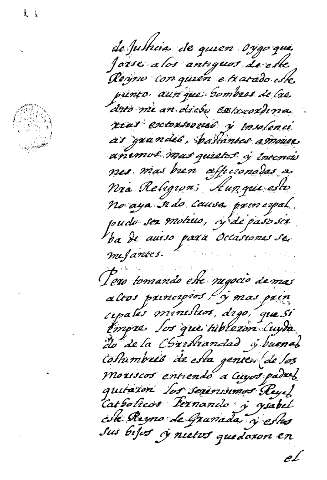 de Justicia de quien oygo que
Jarse a los antiguos de este
Reyno con quien e tratado este
punto aunque hombres de cre
dito me an dicho extraordina
rias extorsiones y insolenci
as grandes, bastantes a mouer
animos mas quietos y intencio
nes mas bien afficionadas a
nra Religion; Aunque esto
no aya sido causa principal
pudo ser motiuo, y de paso sir
ba de auiso para occasiones se
mejantes.
Pero tomando este negocio de mas
altos principios y mas prin
cipales ministros, digo, que si
empre los que tubieron cuyda
do de la christiandad y buenas
costumbres de esta gente (de los
moriscos entiendo a cuyos padres
quitaron los serenisimos Reyes
Catholicos Fernando y ysabel
este Reyno de Granada y estos
sus hijos y nietos quedaron en
el